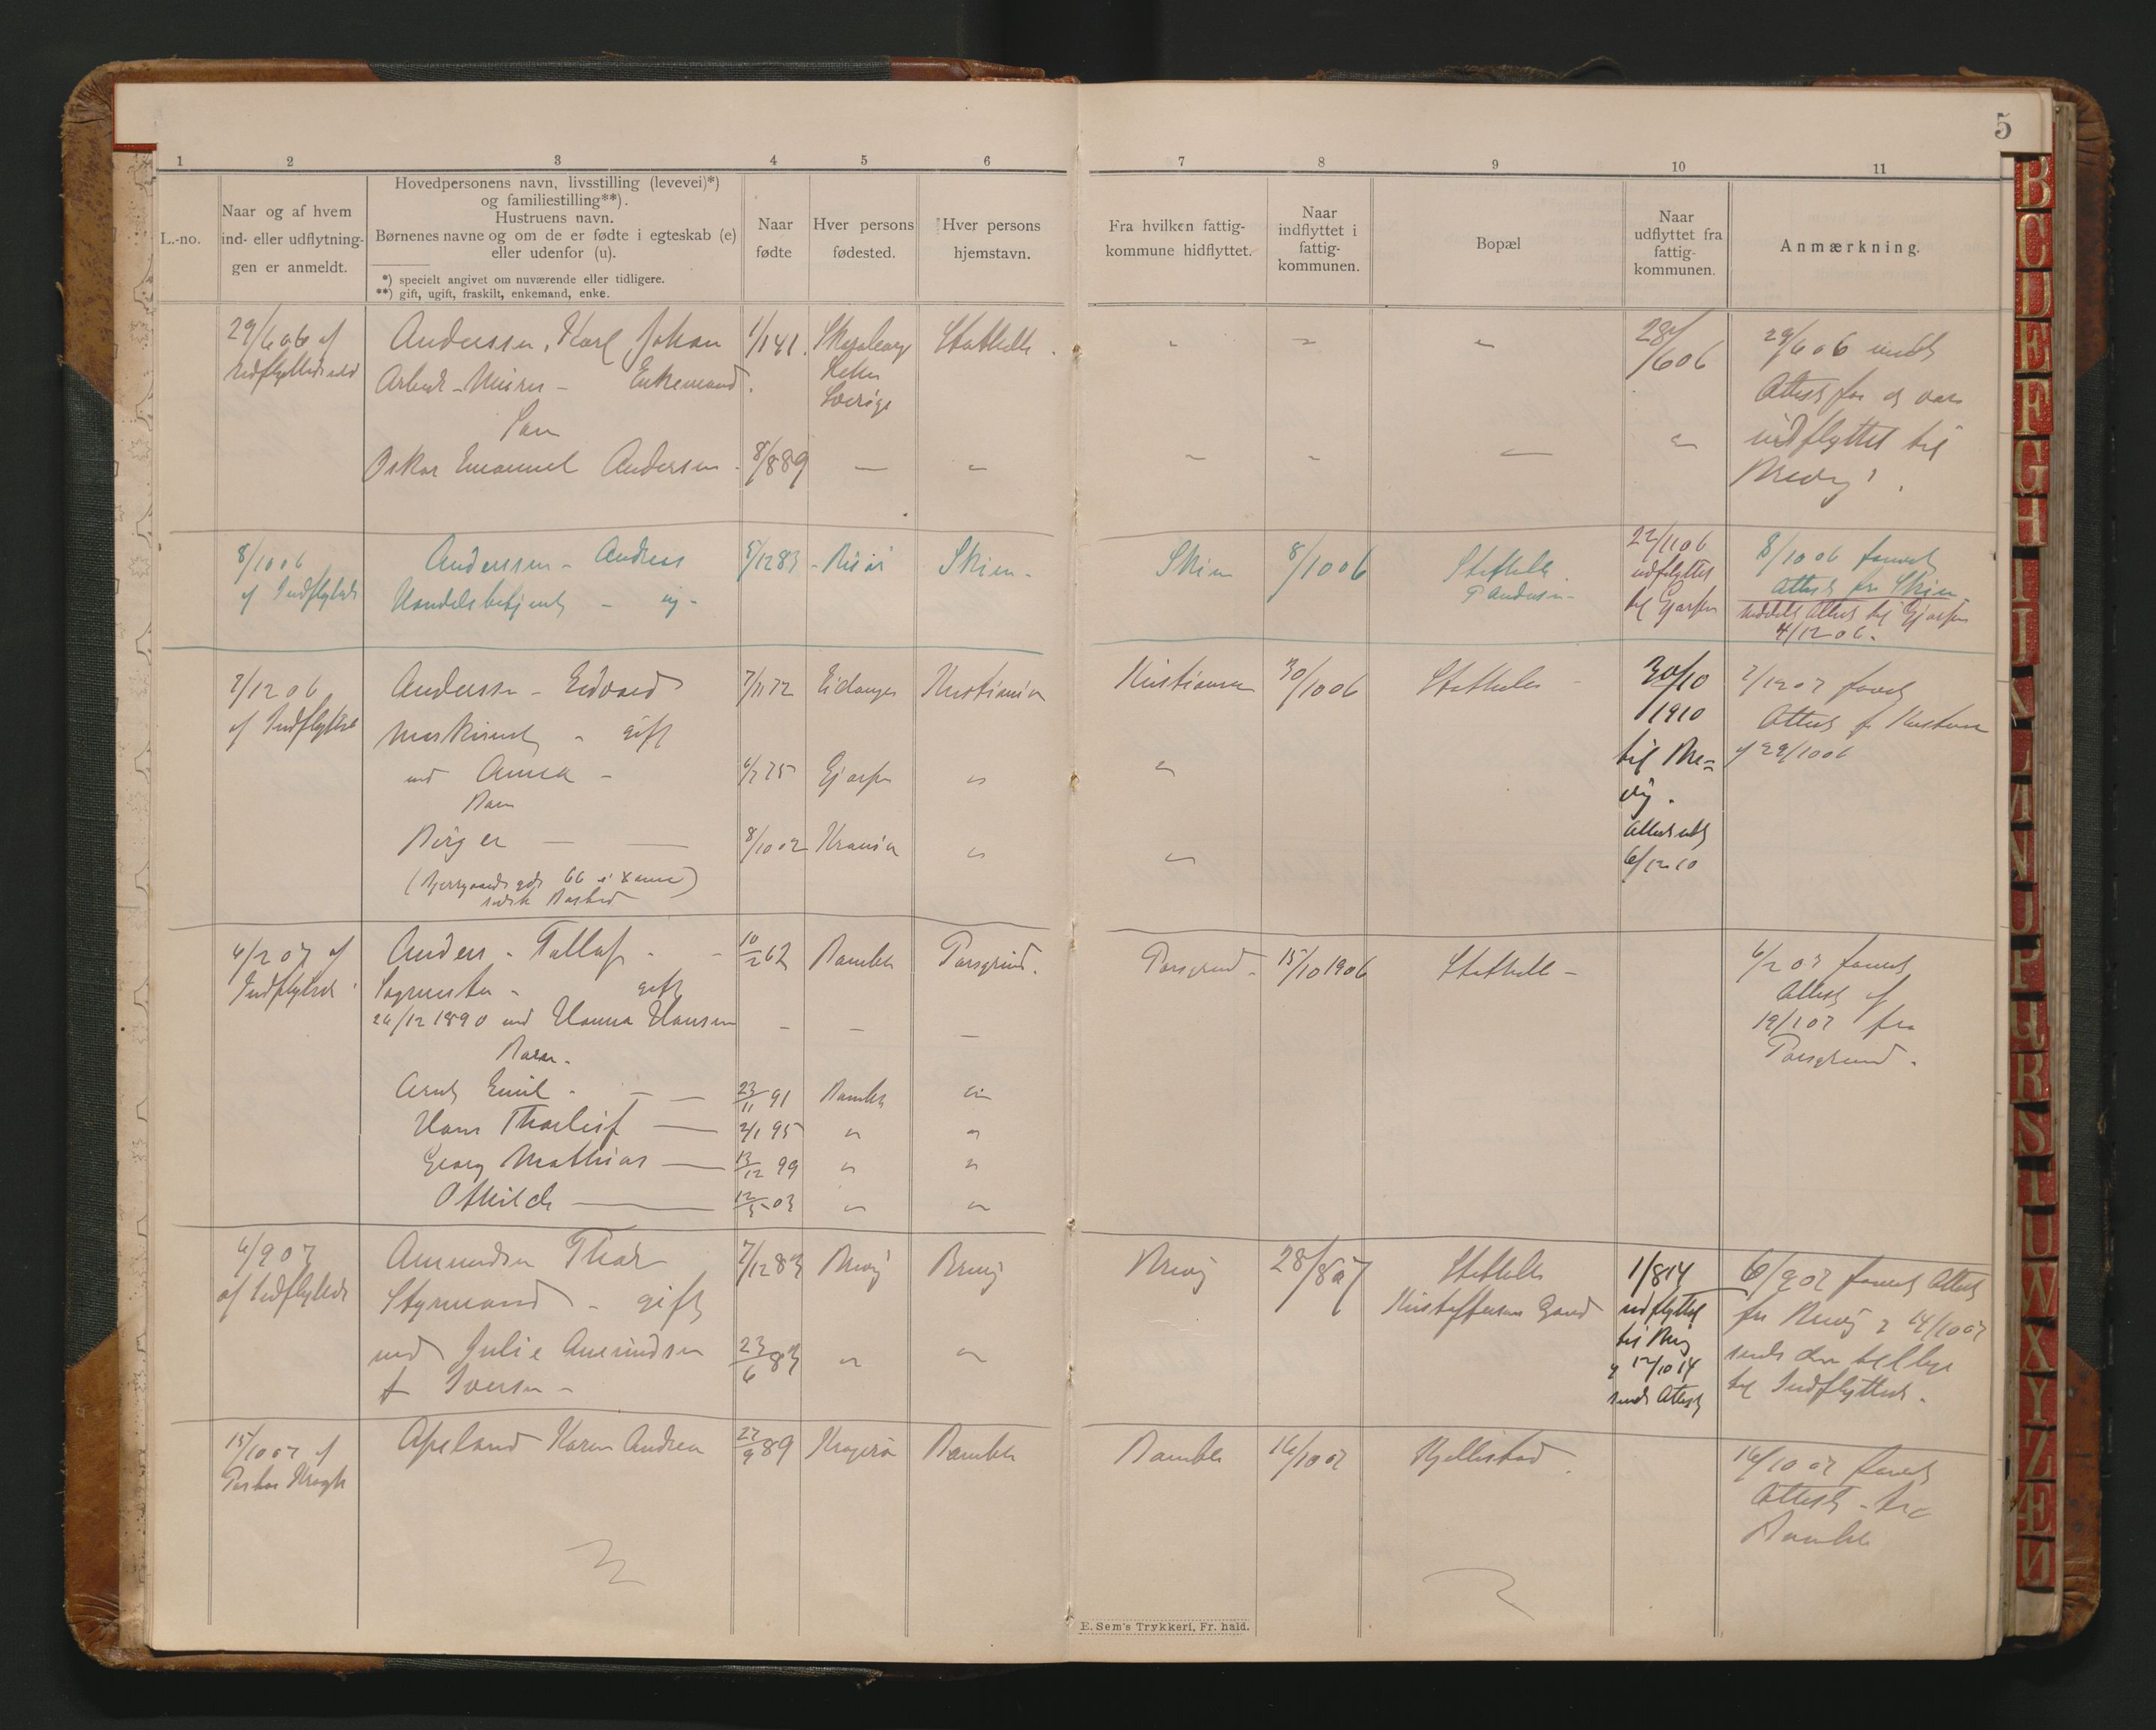 5
1 2 3 4 5 6 7 8 9 10 11
L.-no.
Naar og af hvem
ind- eller udflytnin-
gen er anmeldt.
Hovedpersonens navn, livsstilling (levevei)*)
og familiestilling**).
Hustruens navn.
Børnenes navne og om de er fødte i egteskab (e)
eller udenfor (u).
*) specielt angivet om nuværende eller tidligere.
**) gift, ugift, fraskilt, enkemand, enke.
Naar
fødte
Hver persons
fødested.
Hver persons
hjemstavn.
Fra hvilken fattig-
kommune hidflyttet.
Naar
indflyttet i
fattig-
kommunen.
Bopæl
Naar
udflyttet fra
fattig-
kommunen.
Anmærkning.
29/6 06 af
Udflyttede
Anderssen, Karl Johan
Arbeid - Murer - Enkemand.
Søn
Oskar Emanuel Andersen
1/1 41.
8/8 89
Sverige
Stathelle
28/6 06
29/6 06 
Attest for at være
udflyttet til
Brevig
8/10 06
af Indflyttede
Anderssen - Andreas
Handelsbetjent - ug -
5/12 83
Risør
Skien -
Skien
8/10 06
Stathelle
P Andersen -
22/11 06
udflyttet
til Gjerpen
8/10 06 forevist
Attest fra Skien
meddelt Attest til Gjerpen
4/12 06.
7/12 06
af Indflyttede
Anderssen - Edvard
Maskinist - gift
med Anna -
Barn
Birger
7/11 72
Eidanger
Kristiania
6/7 75
Gjerpen
8/10 02
Krania
Kristiania
30/10 06
Stathelle
30/10
1910
til Bre=
vig.
Attest uds
6/12 10
Attest fr Kristiania
af 29/10 06
6/2 07 af
Indflyttede
Anders - Tallaf -
Sagmester - gift
26/12 1890 med Hanna Hansen
Barn -
Arnt Emil -
Hans Thorleif
Georg Mathias
Othilde
10/2 62
Bamble
Porsgrund.
23/11 91
Bamble
2/1 95
13/12 99
12/5 03
Porsgrund -
15/10 1906
Stathelle -
6/2 07 forevist
Attest af
19/1 07 fra
Porsgrund.
6/9 07
af Indflyttede
Amundsen Thor
Styrmand - gift
med Julie Amundsen
f Iversen -
7/12 83
Brevig
Brevig
23/6 83
Brevig
28/8 07
Stathelle
Kristoffersens Gaard
1/8 14
udflyttet
til Brevig
12/10 14
sendt Attest
6/9 07 forevist Attest
fra Brevig 14/10 07
til Indflyttede.
15/10 07 af
Pastor Krogh
Apeland Karen Andrea
27/9 89
Kragerø
Bamble
Bamble
16/10 07
Kjellestad
16/10 07 forevist
Attest fra
Bamble
E. Sem's Trykkeri, Fr. hald.
B
C
D
E
F
G
H
I
J
K
L
M
N
O
P
Q
R
S
T
U
W
X
Y
Z
Æ
Ø